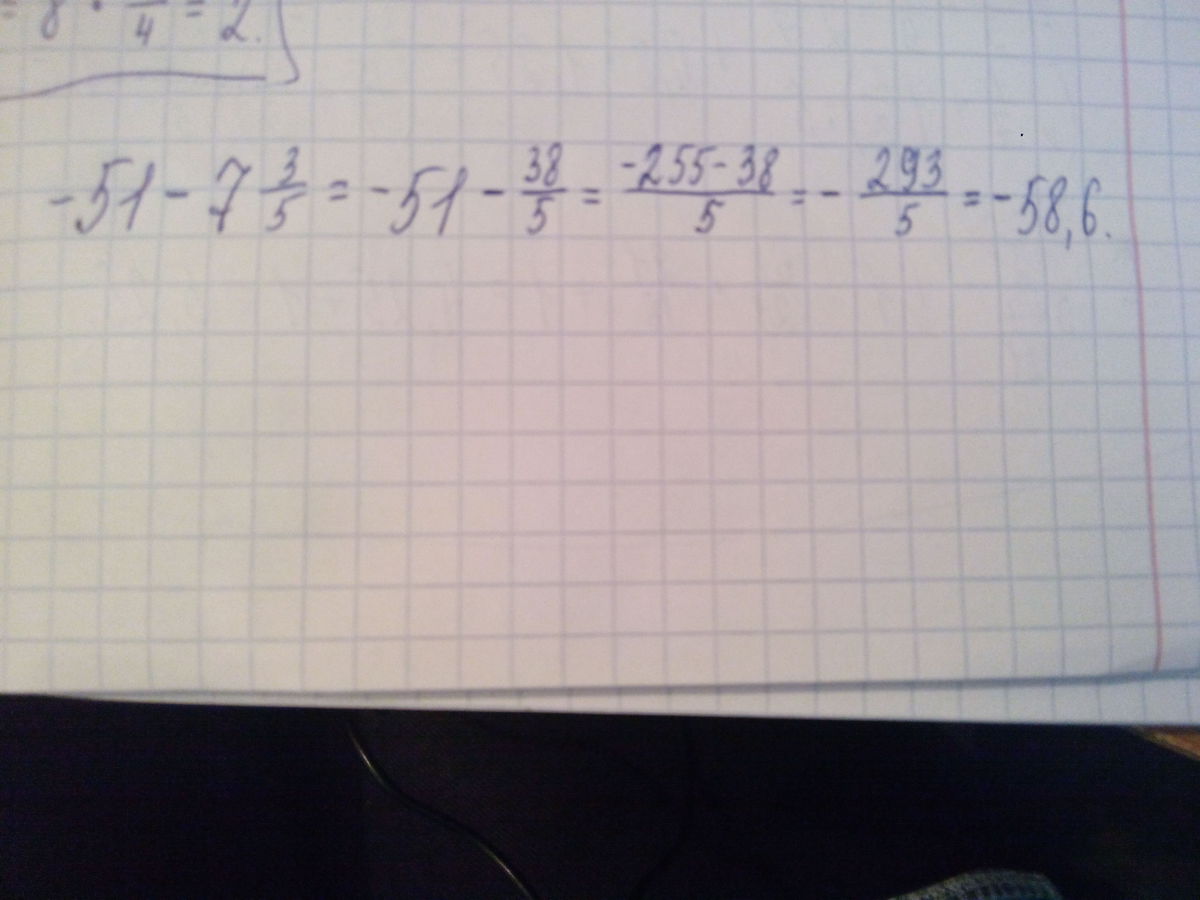 = 8 · /4 = 2.
-51 - 7 3/5 = -51 - 38/5 = -255-38/5 = - 293/5 = -58,6.